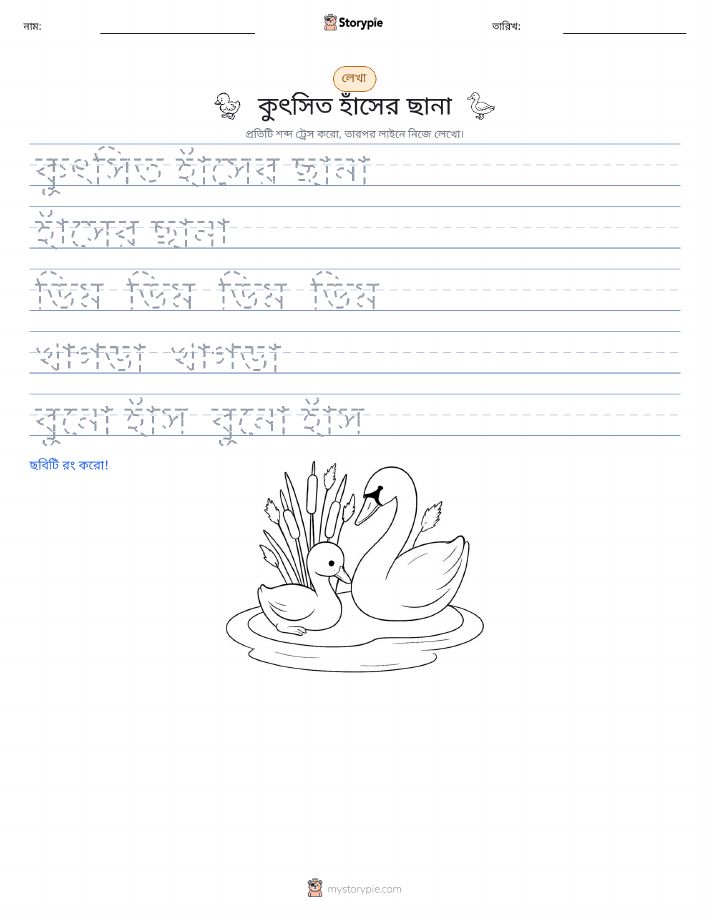 নাম:
Storypie
তারিখ:
লেখা
কুৎসিত হাঁসের ছানা
প্রতিটি শব্দ ট্রেস করো, তারপর লাইনে নিজে লেখো।
কুৎসিত হাঁসের ছানা
হাঁসের ছানা
ডিম ডিম ডিম ডিম
খাগড়া খাগড়া
বুনো হাঁস বুনো হাঁস
ছবিটি রং করো!
mystorypie.com